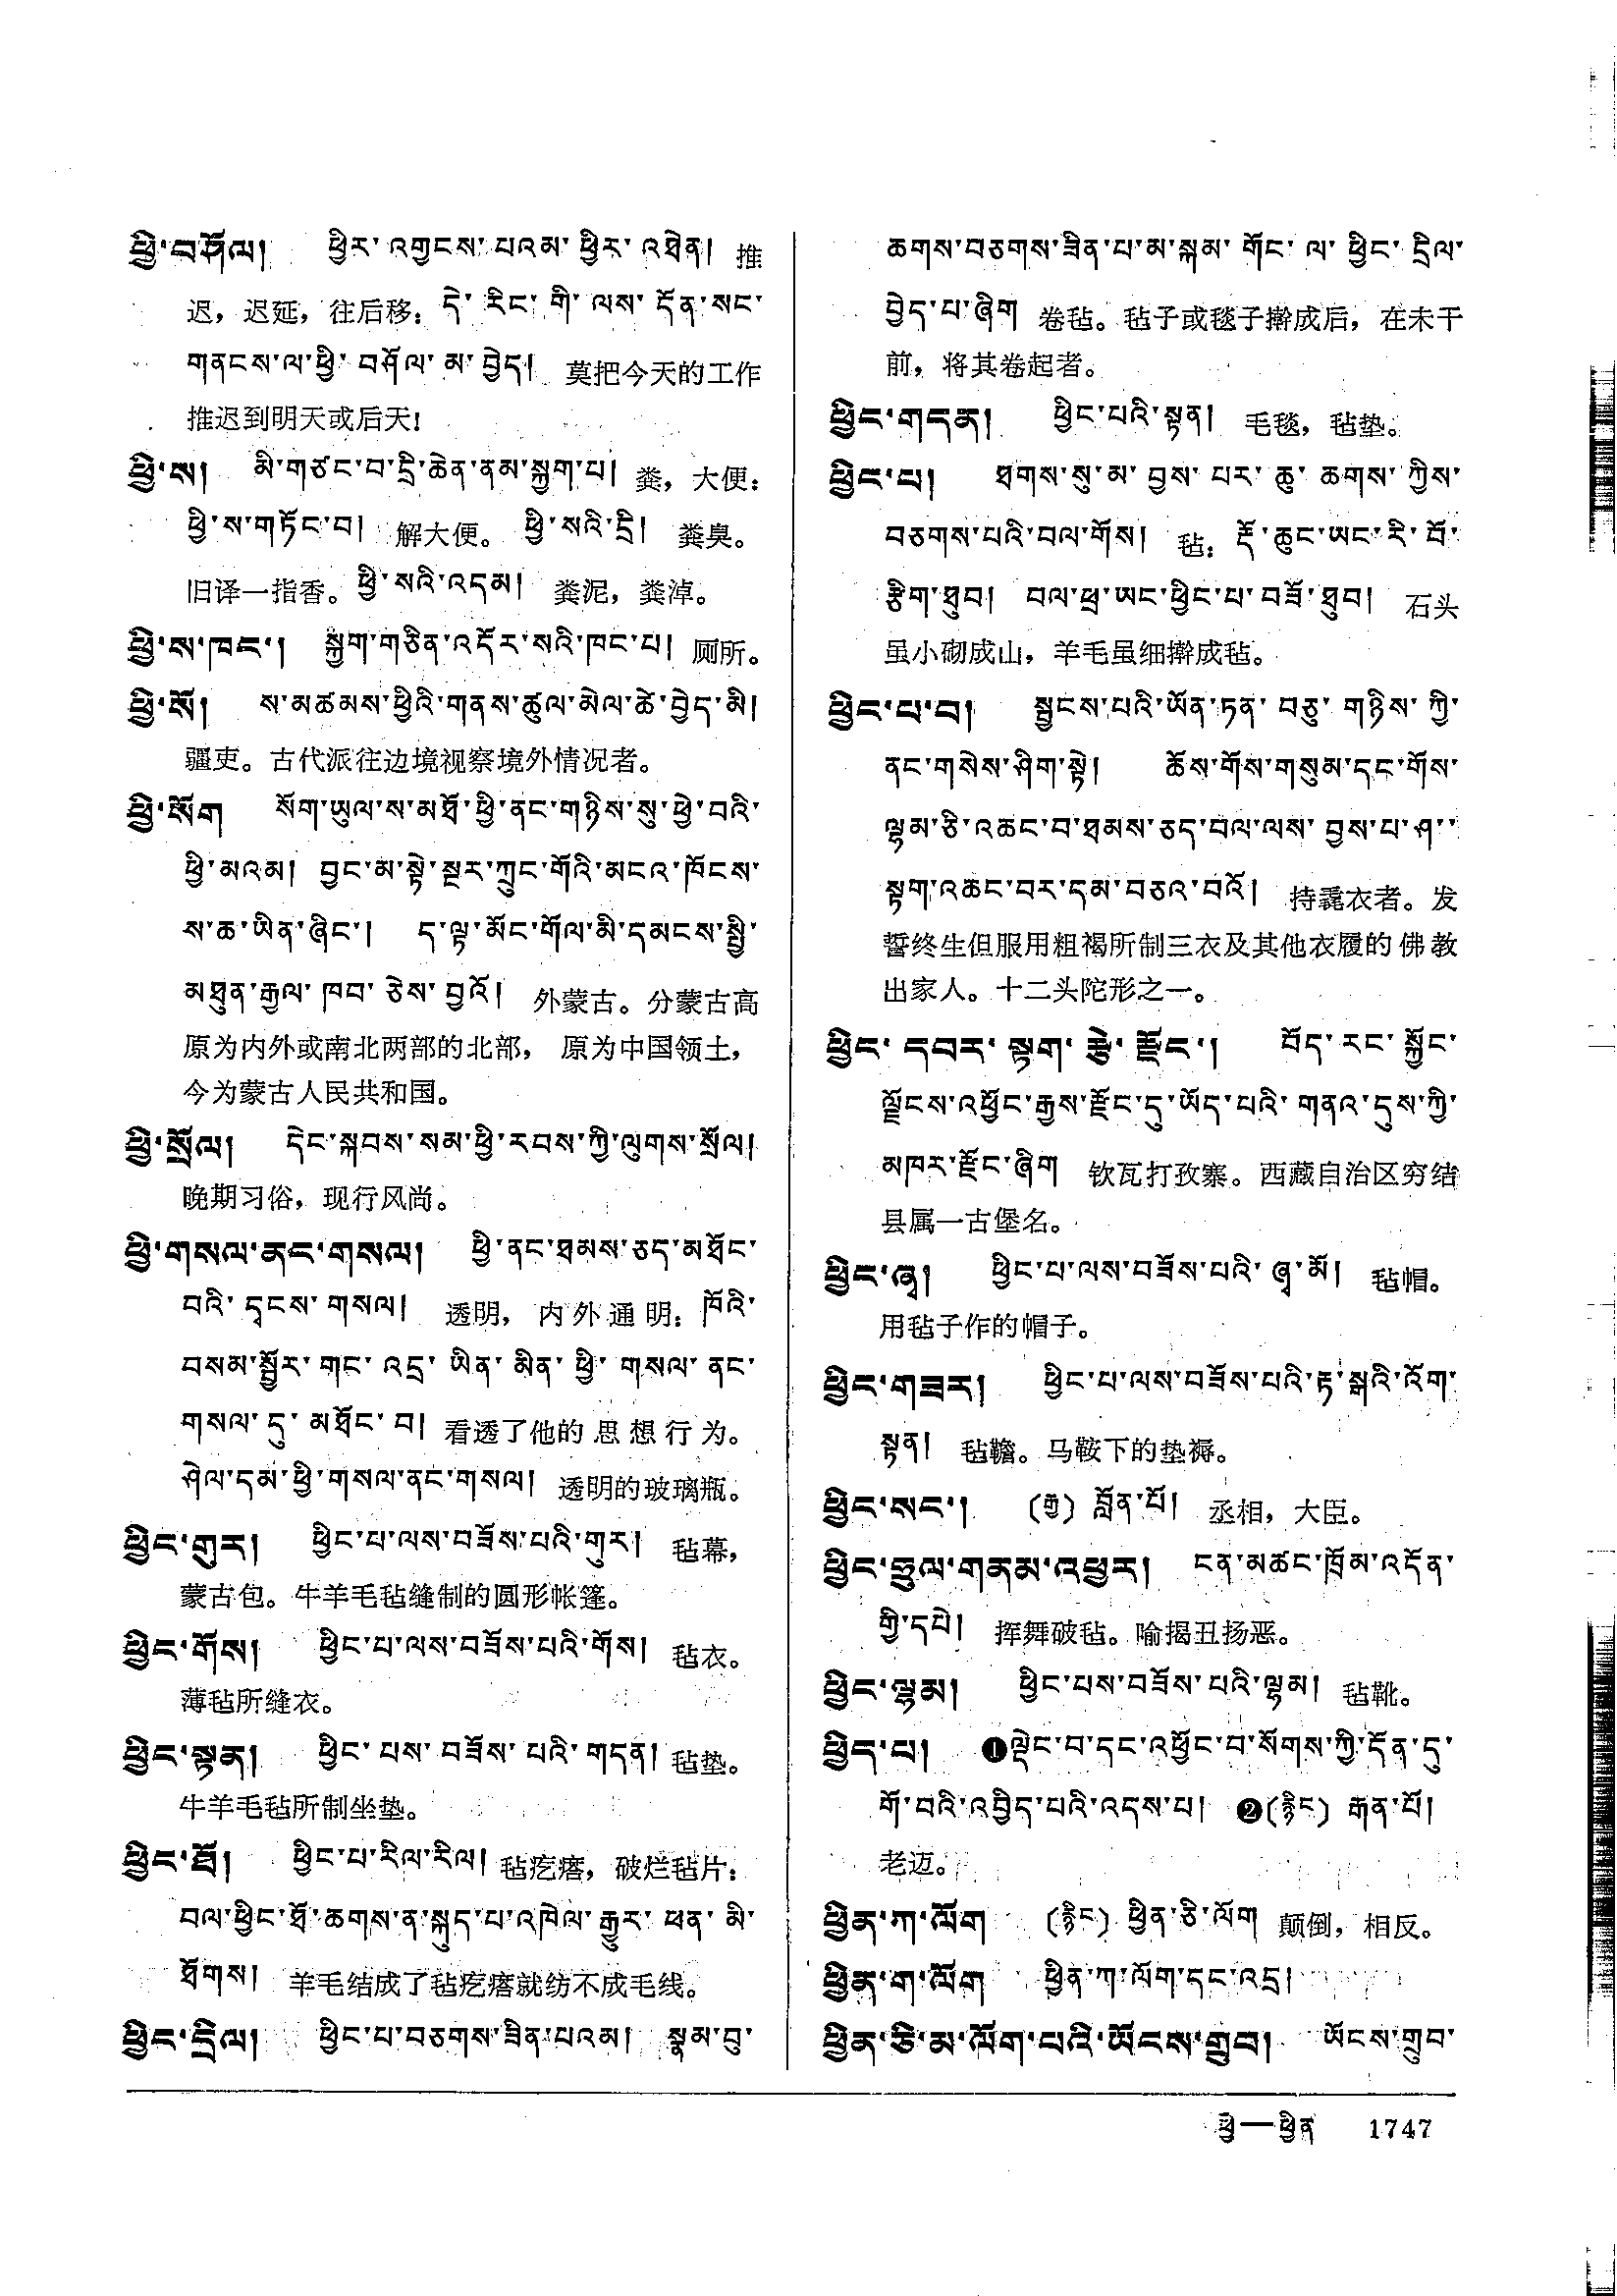 ཕྱི་བཤོལ། ཕྱིར་འགྱངས་པའམ་ཕྱིར་འཐེན། 推
迟，迟延，往后移：དེ་རིང་གི་ལས་དོན་སང་
གནངས་ལ་ཕྱི་བཤོལ་མ་བྱེད། 莫把今天的工作
推迟到明天或后天！
ཕྱི་ས། མི་གཙང་བ་དྲི་ཆེན་ནམ་སྐྱག་པ། 粪，大便：
ཕྱི་ས་གཏོང་བ། 解大便。 ཕྱི་སའི་དྲི། 粪臭。
旧译一指香。ཕྱི་སའི་འདམ། 粪泥，粪淖。
ཕྱི་ས་ཁང་། སྐྱག་གཅིན་འདོར་སའི་ཁང་པ། 厕所。
ཕྱི་སོ། ས་མཚམས་ཕྱིའི་གནས་ཚུལ་མེལ་ཚེ་བྱེད་མི།
疆吏。古代派往边境视察境外情况者。
ཕྱི་སོག སོག་ཡུལ་ས་མཐོ་ཕྱི་ནང་གཉིས་སུ་ཕྱེ་བའི་
ཕྱི་མའམ། བྱང་མ་སྟེ་སྔར་ཀྲུང་གོའི་མངའ་ཁོངས་
ས་ཆ་ཡིན་ཞིང་། ད་ལྟ་མོང་གོལ་མི་དམངས་སྤྱི་
མཐུན་རྒྱལ་ཁབ་ཅེས་བྱའོ། 外蒙古。分蒙古高
原为内外或南北两部的北部， 原为中国领土，
今为蒙古人民共和国。
ཕྱི་སྲོལ། དེང་སྐབས་སམ་ཕྱི་རབས་ཀྱི་ལུགས་སྲོལ།
晚期习俗，现行风尚。
ཕྱི་གསལ་ནང་གསལ། ཕྱི་ནང་ཐམས་ཅད་མཐོང་
བའི་དྭངས་གསལ། 透明，内外通明：ཁོའི་
བསམ་སྦྱོར་གང་འདྲ་ཡིན་མིན་ཕྱི་གསལ་ནང་
གསལ་དུ་མཐོང་བ། 看透了他的思想行为。
ཤེལ་དམ་ཕྱི་གསལ་ནང་གསལ། 透明的玻璃瓶。
ཕྱིང་གུར། ཕྱིང་པ་ལས་བཟོས་པའི་གུར། 毡幕，
蒙古包。牛羊毛毡缝制的圆形帐篷。
ཕྱིང་གོས། ཕྱིང་པ་ལས་བཟོས་པའི་གོས། 毡衣。
薄毡所缝衣。
ཕྱིང་སྟན། ཕྱིང་པས་བཟོས་པའི་གདན། 毡垫。
牛羊毛毡所制坐垫。
ཕྱིང་ཐོ། ཕྱིང་པ་རིལ་རིལ། 毡疙瘩，破烂毡片：
བལ་ཕྱིང་ཐོ་ཆགས་ན་སྐུད་པ་འཁེལ་རྒྱུར་ཕན་མི་
ཐོགས། 羊毛结成了毡疙瘩就纺不成毛线。
ཕྱིང་དྲིལ། ཕྱིང་པ་བཅགས་ཟིན་པའམ། སྣམ་བུ་
ཆགས་བཅགས་ཟིན་པ་མ་སྐམ་གོང་ལ་ཕྱིང་དྲིལ་
བྱེད་པ་ཞིག 卷毡。毡子或毯子擀成后，在未干
前，将其卷起者。
ཕྱིང་གདན། ཕྱིང་པའི་སྟན། 毛毯，毡垫。
ཕྱིང་པ། ཐགས་སུ་མ་བྱས་པར་ཆུ་ཆགས་ཀྱིས་
བཅགས་པའི་བལ་གོས། 毡：རྡོ་ཆུང་ཡང་རི་བོ་
རྩིག་ཐུབ། བལ་ཕྲ་ཡང་ཕྱིང་པ་བཟོ་ཐུབ། 石头
虽小砌成山，羊毛虽细擀成毡。
ཕྱིང་པ་བ། སྦྱངས་པའི་ཡོན་ཏན་བཅུ་གཉིས་ཀྱི་
ནང་གསེས་ཤིག་སྟེ། ཆོས་གོས་གསུམ་དང་གོས་
ལྷམ་ཅི་འཆང་བ་ཐམས་ཅད་བལ་ལས་བྱས་པ་ཤ་
སྟག་འཆང་བར་དམ་བཅའ་བའོ། 持毳衣者。发
誓终生但服用粗褐所制三衣及其他衣履的佛教
出家人。十二头陀形之一。
ཕྱིང་དབར་སྟག་རྩེ་རྫོང་། བོད་རང་སྐྱོང་
ལྗོངས་འཕྱོང་རྒྱས་རྫོང་དུ་ཡོད་པའི་གནའ་དུས་ཀྱི་
མཁར་རྫོང་ཞིག 钦瓦打孜寨。西藏自治区穷结
县属一古堡名。
ཕྱིང་ཞྭ། ཕྱིང་པ་ལས་བཟོས་པའི་ཞྭ་མོ། 毡帽。
用毡子作的帽子。
ཕྱིང་གཟར། ཕྱིང་པ་ལས་བཟོས་པའི་རྟ་སྒའི་འོག་
སྟན། 毡韂。马鞍下的垫褥。
ཕྱིང་སང་། (རྒྱ) བློན་པོ། 丞相，大臣。
ཕྱིང་ཧྲུལ་གནམ་འཕྱར། ངན་མཚང་ཁྲོམ་འདོན་
གྱི་དཔེ། 挥舞破毡。喻揭丑扬恶。
ཕྱིང་ལྷམ། ཕྱིང་པས་བཟོས་པའི་ལྷམ། 毡靴。
ཕྱིད་པ། ❶ལྡེང་བ་དང་འཕྱོང་བ་སོགས་ཀྱི་དོན་དུ་
གོ་བའི་འབྱིད་པའི་འདས་པ། ❷(རྙིང) རྒན་པོ།
老迈。
ཕྱིན་ཀ་ལོག (རྙིང) ཕྱིན་ཅི་ལོག 颠倒，相反。
ཕྱིན་ག་ལོག ཕྱིན་ཀ་ལོག་དང་འདྲ།
ཕྱིན་ཅི་མ་ལོག་པའི་ཡོངས་གྲུབ། ཡོངས་གྲུབ་
ཕྱི—ཕྱིན 1747